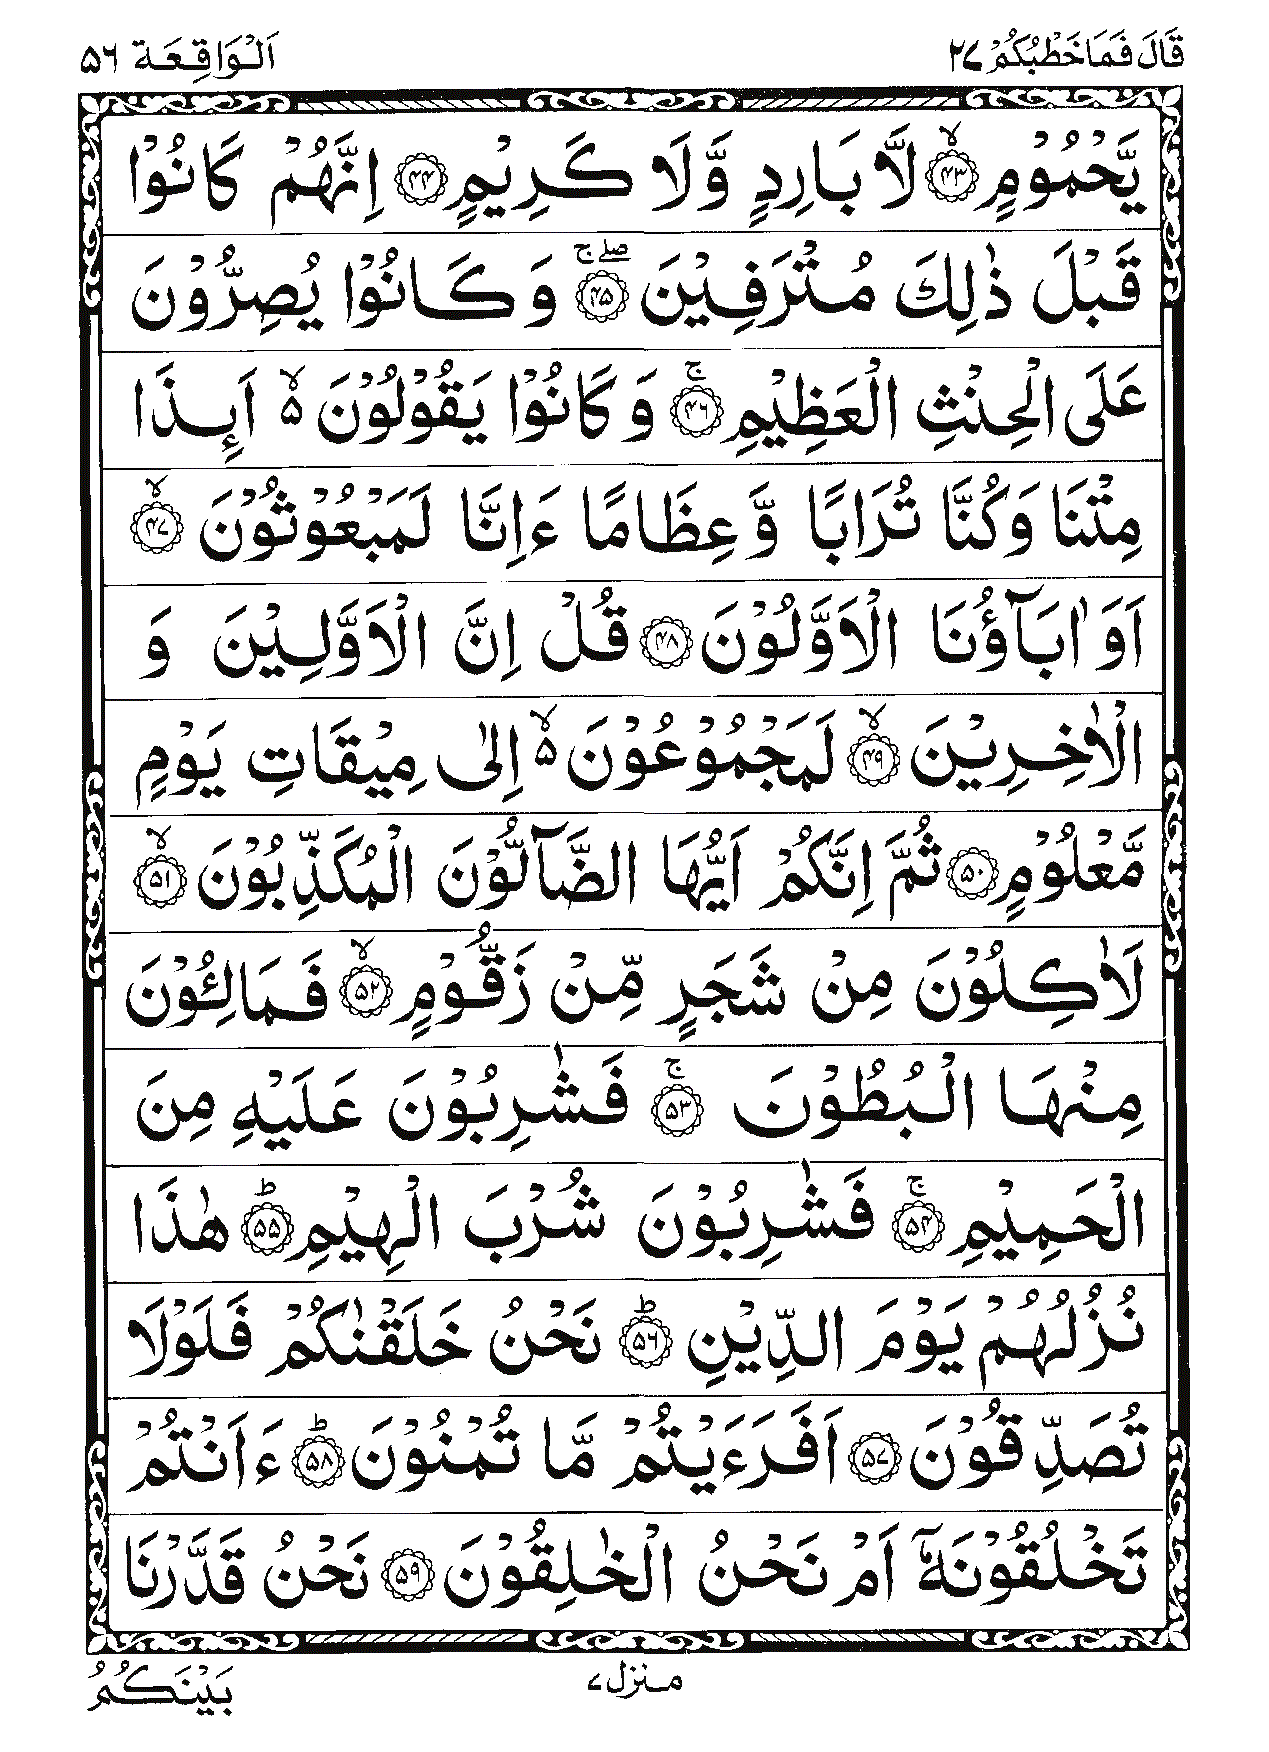 قَالَ فَمَا خَطْبُكُمْ ۲۷
اَلْوَاقِعَة ۵۶
يَّحْمُوْمٍ ۙ‏﴿۴۳﴾ لَّا بَارِدٍ وَّلَا كَرِيْمٍ ﴿۴۴﴾ اِنَّهُمْ كَانُوْا
قَبْلَ ذٰلِكَ مُتْرَفِيْنَ ۖۚ ﴿۴۵﴾ وَ كَانُوْا يُصِرُّوْنَ
عَلَى الْحِنْثِ الْعَظِيْمِ ۚ ﴿۴۶﴾ وَ كَانُوْا يَقُوْلُوْنَ ۵ۙ اَىِٕذَا
مِتْنَا وَكُنَّا تُرَابًا وَّ عِظَامًا ءَاِنَّا لَمَبْعُوْثُوْنَ ۙ ﴿۴۷﴾
اَوَ اٰبَآؤُنَا الْاَوَّلُوْنَ ﴿۴۸﴾ قُلْ اِنَّ الْاَوَّلِيْنَ وَ
الْاٰخِرِيْنَ ۙ ﴿۴۹﴾ لَمَجْمُوْعُوْنَ ۵ۙ اِلٰى مِيْقَاتِ يَوْمٍ
مَّعْلُوْمٍ ﴿۵۰﴾ ثُمَّ اِنَّكُمْ اَيُّهَا الضَّآلُّوْنَ الْمُكَذِّبُوْنَ ۙ ﴿۵۱﴾
لَاٰكِلُوْنَ مِنْ شَجَرٍ مِّنْ زَقُّوْمٍ ۙ ﴿۵۲﴾ فَمَالِـُٔوْنَ
مِنْهَا الْبُطُوْنَ ۚ ﴿۵۳﴾ فَشٰرِبُوْنَ عَلَيْهِ مِنَ
الْحَمِيْمِ ۚ ﴿۵۴﴾ فَشٰرِبُوْنَ شُرْبَ الْهِيْمِ ؕ ﴿۵۵﴾ هٰذَا
نُزُلُهُمْ يَوْمَ الدِّيْنِ ؕ ﴿۵۶﴾ نَحْنُ خَلَقْنٰكُمْ فَلَوْلَا
تُصَدِّقُوْنَ ﴿۵۷﴾ اَفَرَءَيْتُمْ مَّا تُمْنُوْنَ ؕ ﴿۵۸﴾ ءَاَنْتُمْ
تَخْلُقُوْنَهٗۤ اَمْ نَحْنُ الْخٰلِقُوْنَ ﴿۵۹﴾ نَحْنُ قَدَّرْنَا
منزل ۷
بَيْنَكُمُ